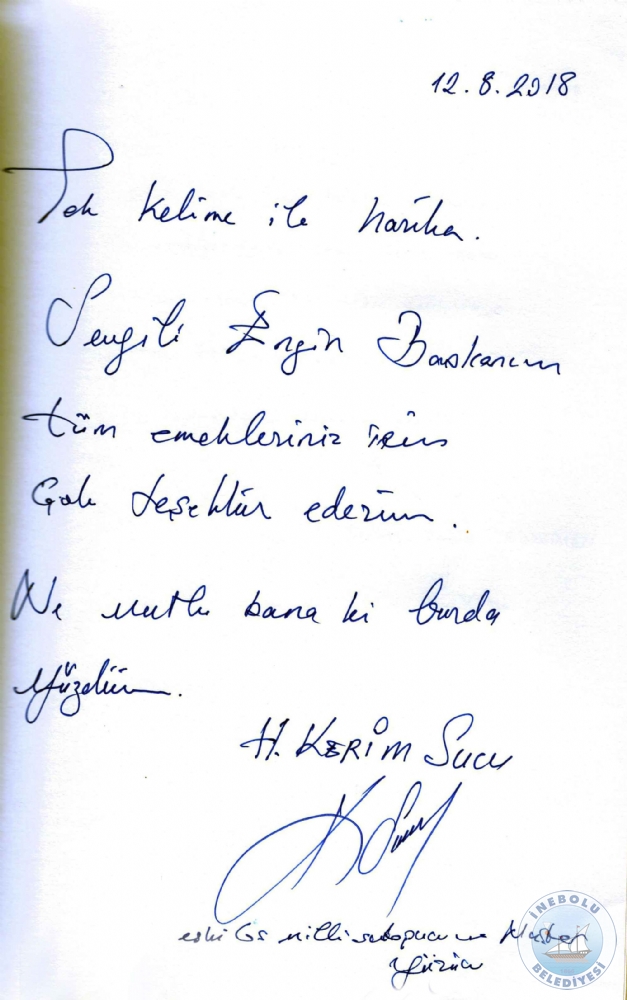 12.8.2018
Tek kelime ile harika.
Sevgili Engin Başkanım
tüm emekleriniz için
Çok teşekkür ederim.
Ne mutlu bana ki burda
yüzdüm.
H. KERİM Sucu
eski GS milli sutopucu ve Master
Yüzücü
İNEBOLU
BELEDİYESİ